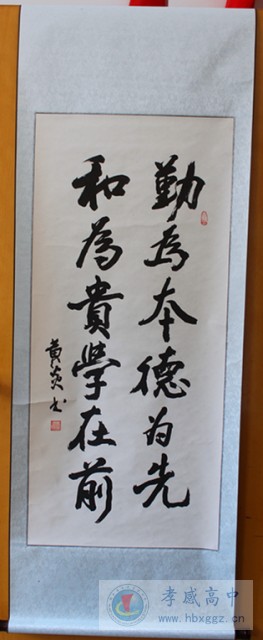 勤為本德为先
和為貴學在前
黄炎书
孝感高中
www.hbxggz.cn